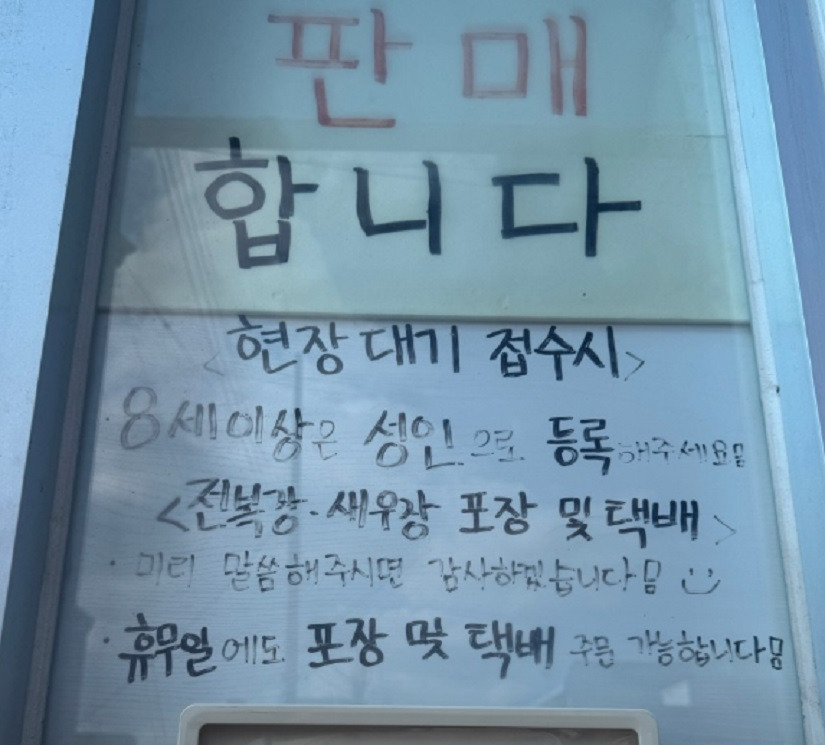 판매
합니다
<현장 대기 접수시>
·8세이상은 성인으로 등록해주세요
<전복장·새우장 포장 및 택배>
· 미리 말씀해주시면 감사하겠습니다 :)
· 휴무일에도 포장 및 택배 주문 가능합니다